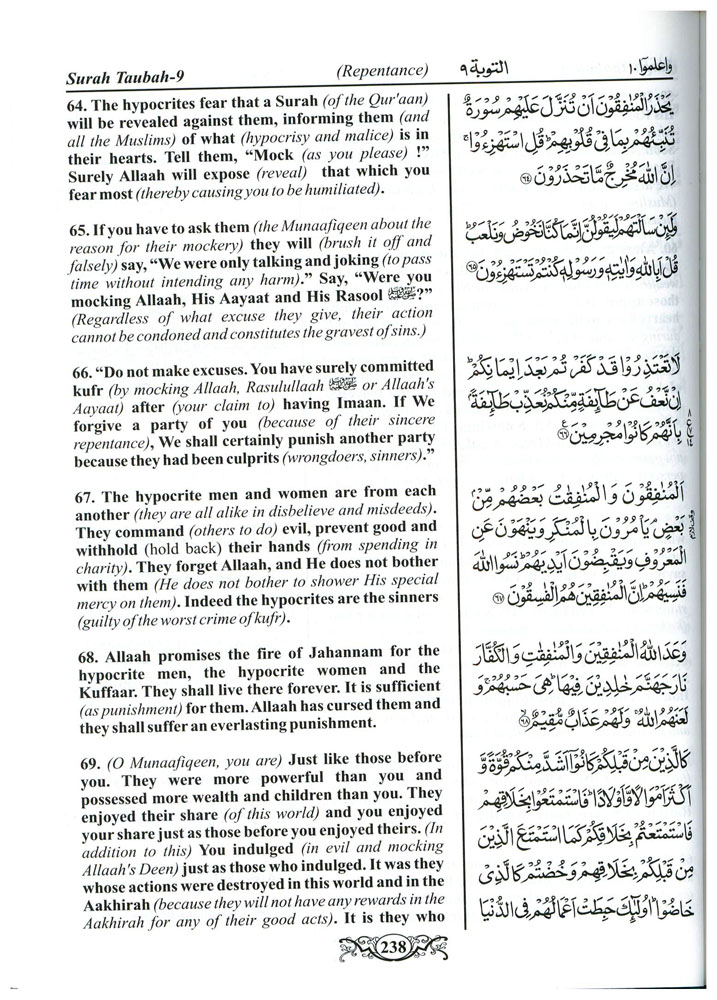 Surah Taubah-9 (Repentance) التوبة ٩ واعلموا ١٠
64. The hypocrites fear that a Surah (of the Qur'aan)
will be revealed against them, informing them (and
all the Muslims) of what (hypocrisy and malice) is in
their hearts. Tell them, “Mock (as you please) !”
Surely Allaah will expose (reveal) that which you
fear most (thereby causing you to be humiliated).
65. If you have to ask them (the Munaafiqeen about the
reason for their mockery) they will (brush it off and
falsely) say, “We were only talking and joking (to pass
time without intending any harm).” Say, “Were you
mocking Allaah, His Aayaat and His Rasool ﷺ?”
(Regardless of what excuse they give, their action
cannot be condoned and constitutes the gravest of sins.)
66. “Do not make excuses. You have surely committed
kufr (by mocking Allaah, Rasulullaah ﷺ or Allaah's
Aayaat) after (your claim to) having Imaan. If We
forgive a party of you (because of their sincere
repentance), We shall certainly punish another party
because they had been culprits (wrongdoers, sinners).”
67. The hypocrite men and women are from each
another (they are all alike in disbelieve and misdeeds).
They command (others to do) evil, prevent good and
withhold (hold back) their hands (from spending in
charity). They forget Allaah, and He does not bother
with them (He does not bother to shower His special
mercy on them). Indeed the hypocrites are the sinners
(guilty of the worst crime of kufr).
68. Allaah promises the fire of Jahannam for the
hypocrite men, the hypocrite women and the
Kuffaar. They shall live there forever. It is sufficient
(as punishment) for them. Allaah has cursed them and
they shall suffer an everlasting punishment.
69. (O Munaafiqeen, you are) Just like those before
you. They were more powerful than you and
possessed more wealth and children than you. They
enjoyed their share (of this world) and you enjoyed
your share just as those before you enjoyed theirs. (In
addition to this) You indulged (in evil and mocking
Allaah's Deen) just as those who indulged. It was they
whose actions were destroyed in this world and in the
Aakhirah (because they will not have any rewards in the
Aakhirah for any of their good acts). It is they who
يَحْذَرُ الْمُنٰفِقُوْنَ اَنْ تُنَزَّلَ عَلَيْهِمْ سُوْرَةٌ
تُنَبِّئُهُمْ بِمَا فِيْ قُلُوْبِهِمْ ۚ قُلِ اسْتَهْزِءُوْا ۚ
اِنَّ اللّٰهَ مُخْرِجٌ مَّا تَحْذَرُوْنَ ٦٤
وَلَئِنْ سَاَلْتَهُمْ لَيَقُوْلُنَّ اِنَّمَا كُنَّا نَخُوْضُ وَنَلْعَبُ ۚ
قُلْ اَبِاللّٰهِ وَاٰيٰتِهٖ وَرَسُوْلِهٖ كُنْتُمْ تَسْتَهْزِءُوْنَ ٦٥
لَا تَعْتَذِرُوْا قَدْ كَفَرْتُمْ بَعْدَ اِيْمَانِكُمْ ۚ
اِنْ نَّعْفُ عَنْ طَآئِفَةٍ مِّنْكُمْ نُعَذِّبْ طَآئِفَةًۢ
بِاَنَّهُمْ كَانُوْا مُجْرِمِيْنَ ٦٦
اَلْمُنٰفِقُوْنَ وَالْمُنٰفِقٰتُ بَعْضُهُمْ مِّنْۢ
بَعْضٍ ۘ يَاْمُرُوْنَ بِالْمُنْكَرِ وَيَنْهَوْنَ عَنِ
الْمَعْرُوْفِ وَيَقْبِضُوْنَ اَيْدِيَهُمْ ۚ نَسُوا اللّٰهَ
فَنَسِيَهُمْ ۚ اِنَّ الْمُنٰفِقِيْنَ هُمُ الْفٰسِقُوْنَ ٦٧
وَعَدَ اللّٰهُ الْمُنٰفِقِيْنَ وَالْمُنٰفِقٰتِ وَالْكُفَّارَ
نَارَ جَهَنَّمَ خٰلِدِيْنَ فِيْهَا ۚ هِيَ حَسْبُهُمْ ۚ وَ
لَعَنَهُمُ اللّٰهُ ۚ وَلَهُمْ عَذَابٌ مُّقِيْمٌ ٦٨
كَالَّذِيْنَ مِنْ قَبْلِكُمْ كَانُوْٓا اَشَدَّ مِنْكُمْ قُوَّةً وَّ
اَكْثَرَ اَمْوَالًا وَّاَوْلَادًا ۚ فَاسْتَمْتَعُوْا بِخَلَاقِهِمْ
فَاسْتَمْتَعْتُمْ بِخَلَاقِكُمْ كَمَا اسْتَمْتَعَ الَّذِيْنَ
مِنْ قَبْلِكُمْ بِخَلَاقِهِمْ وَخُضْتُمْ كَالَّذِيْ
خَاضُوْا ۚ اُولٰٓئِكَ حَبِطَتْ اَعْمَالُهُمْ فِي الدُّنْيَا
238